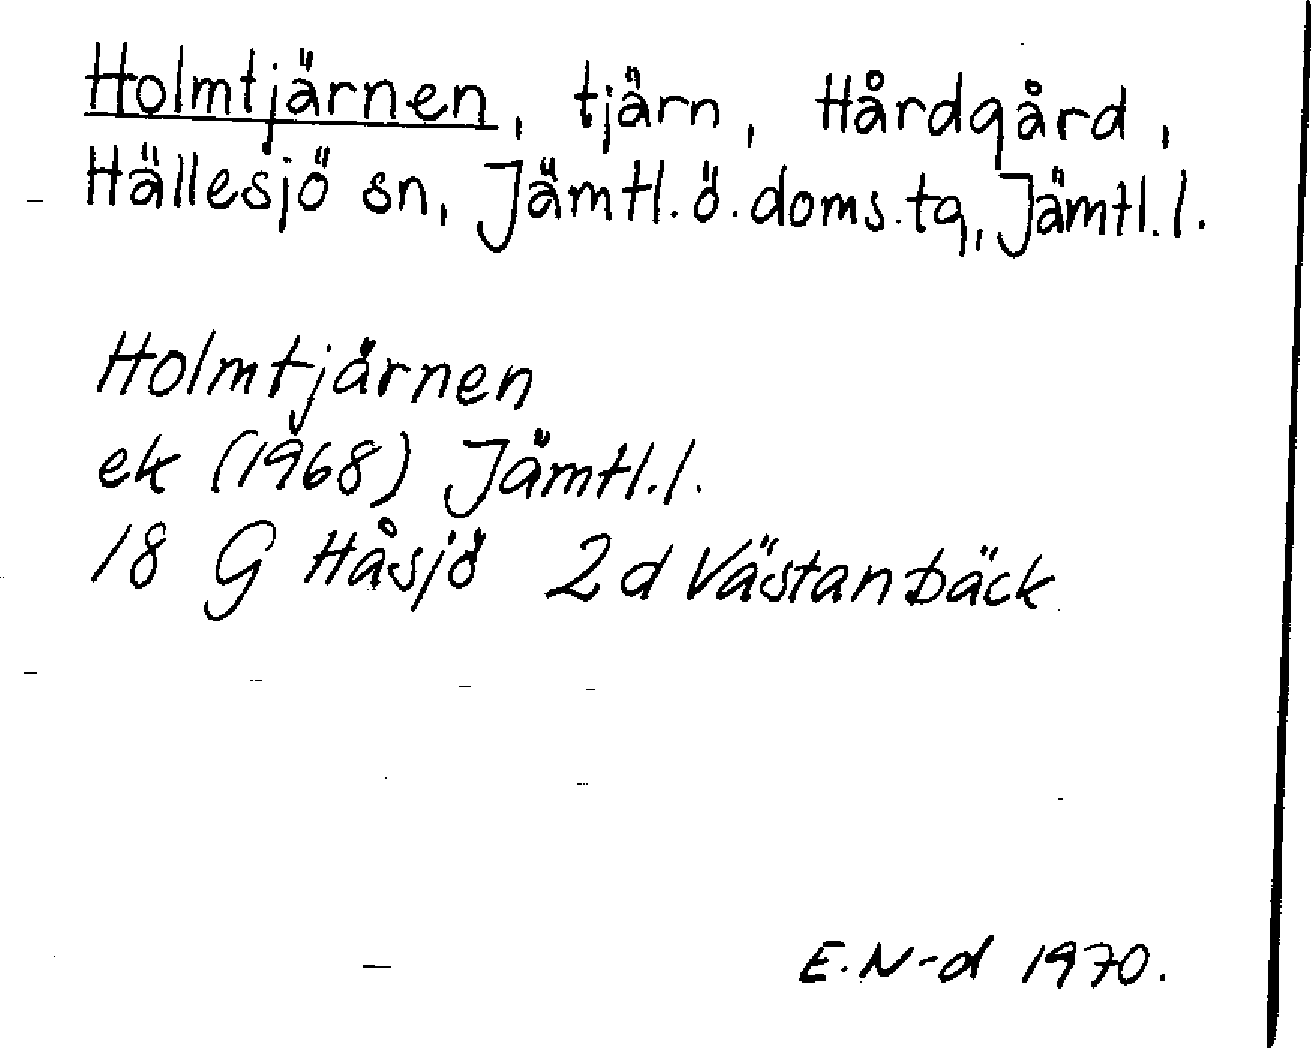 Holmtjärnen, tjärn, Hårdgård,
Hällesjö sn, Jämtl. ö. doms. tg, Jämtl. l.
Holmtjärnen
ek (1968) Jämtl. l.
18 G Håsjö 2d Västanbäck
E. N-d 1970.